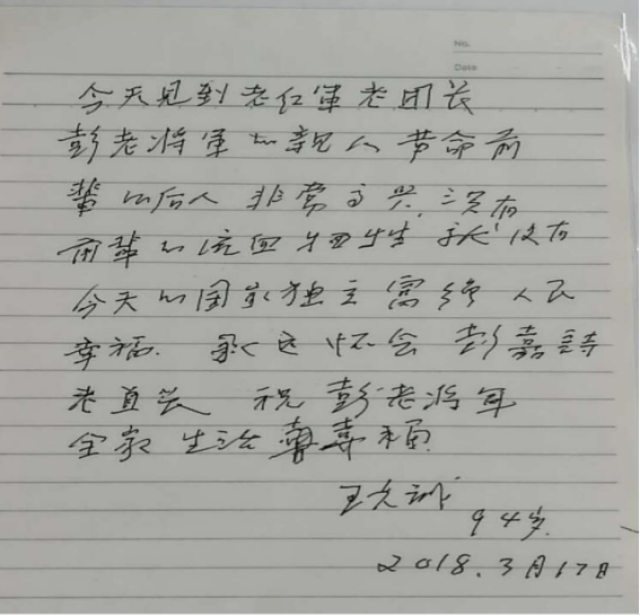 No.
Date
今天見到老红軍老团长
彭老将軍的親人革命前
輩的后人非常高兴,没有
前辈的流血牺牲就没有
今天的国家独立富强人民
幸福. 永远怀念彭嘉
老首长 祝彭老将军
全家生活幸福
王文
94岁
2018.3月17日